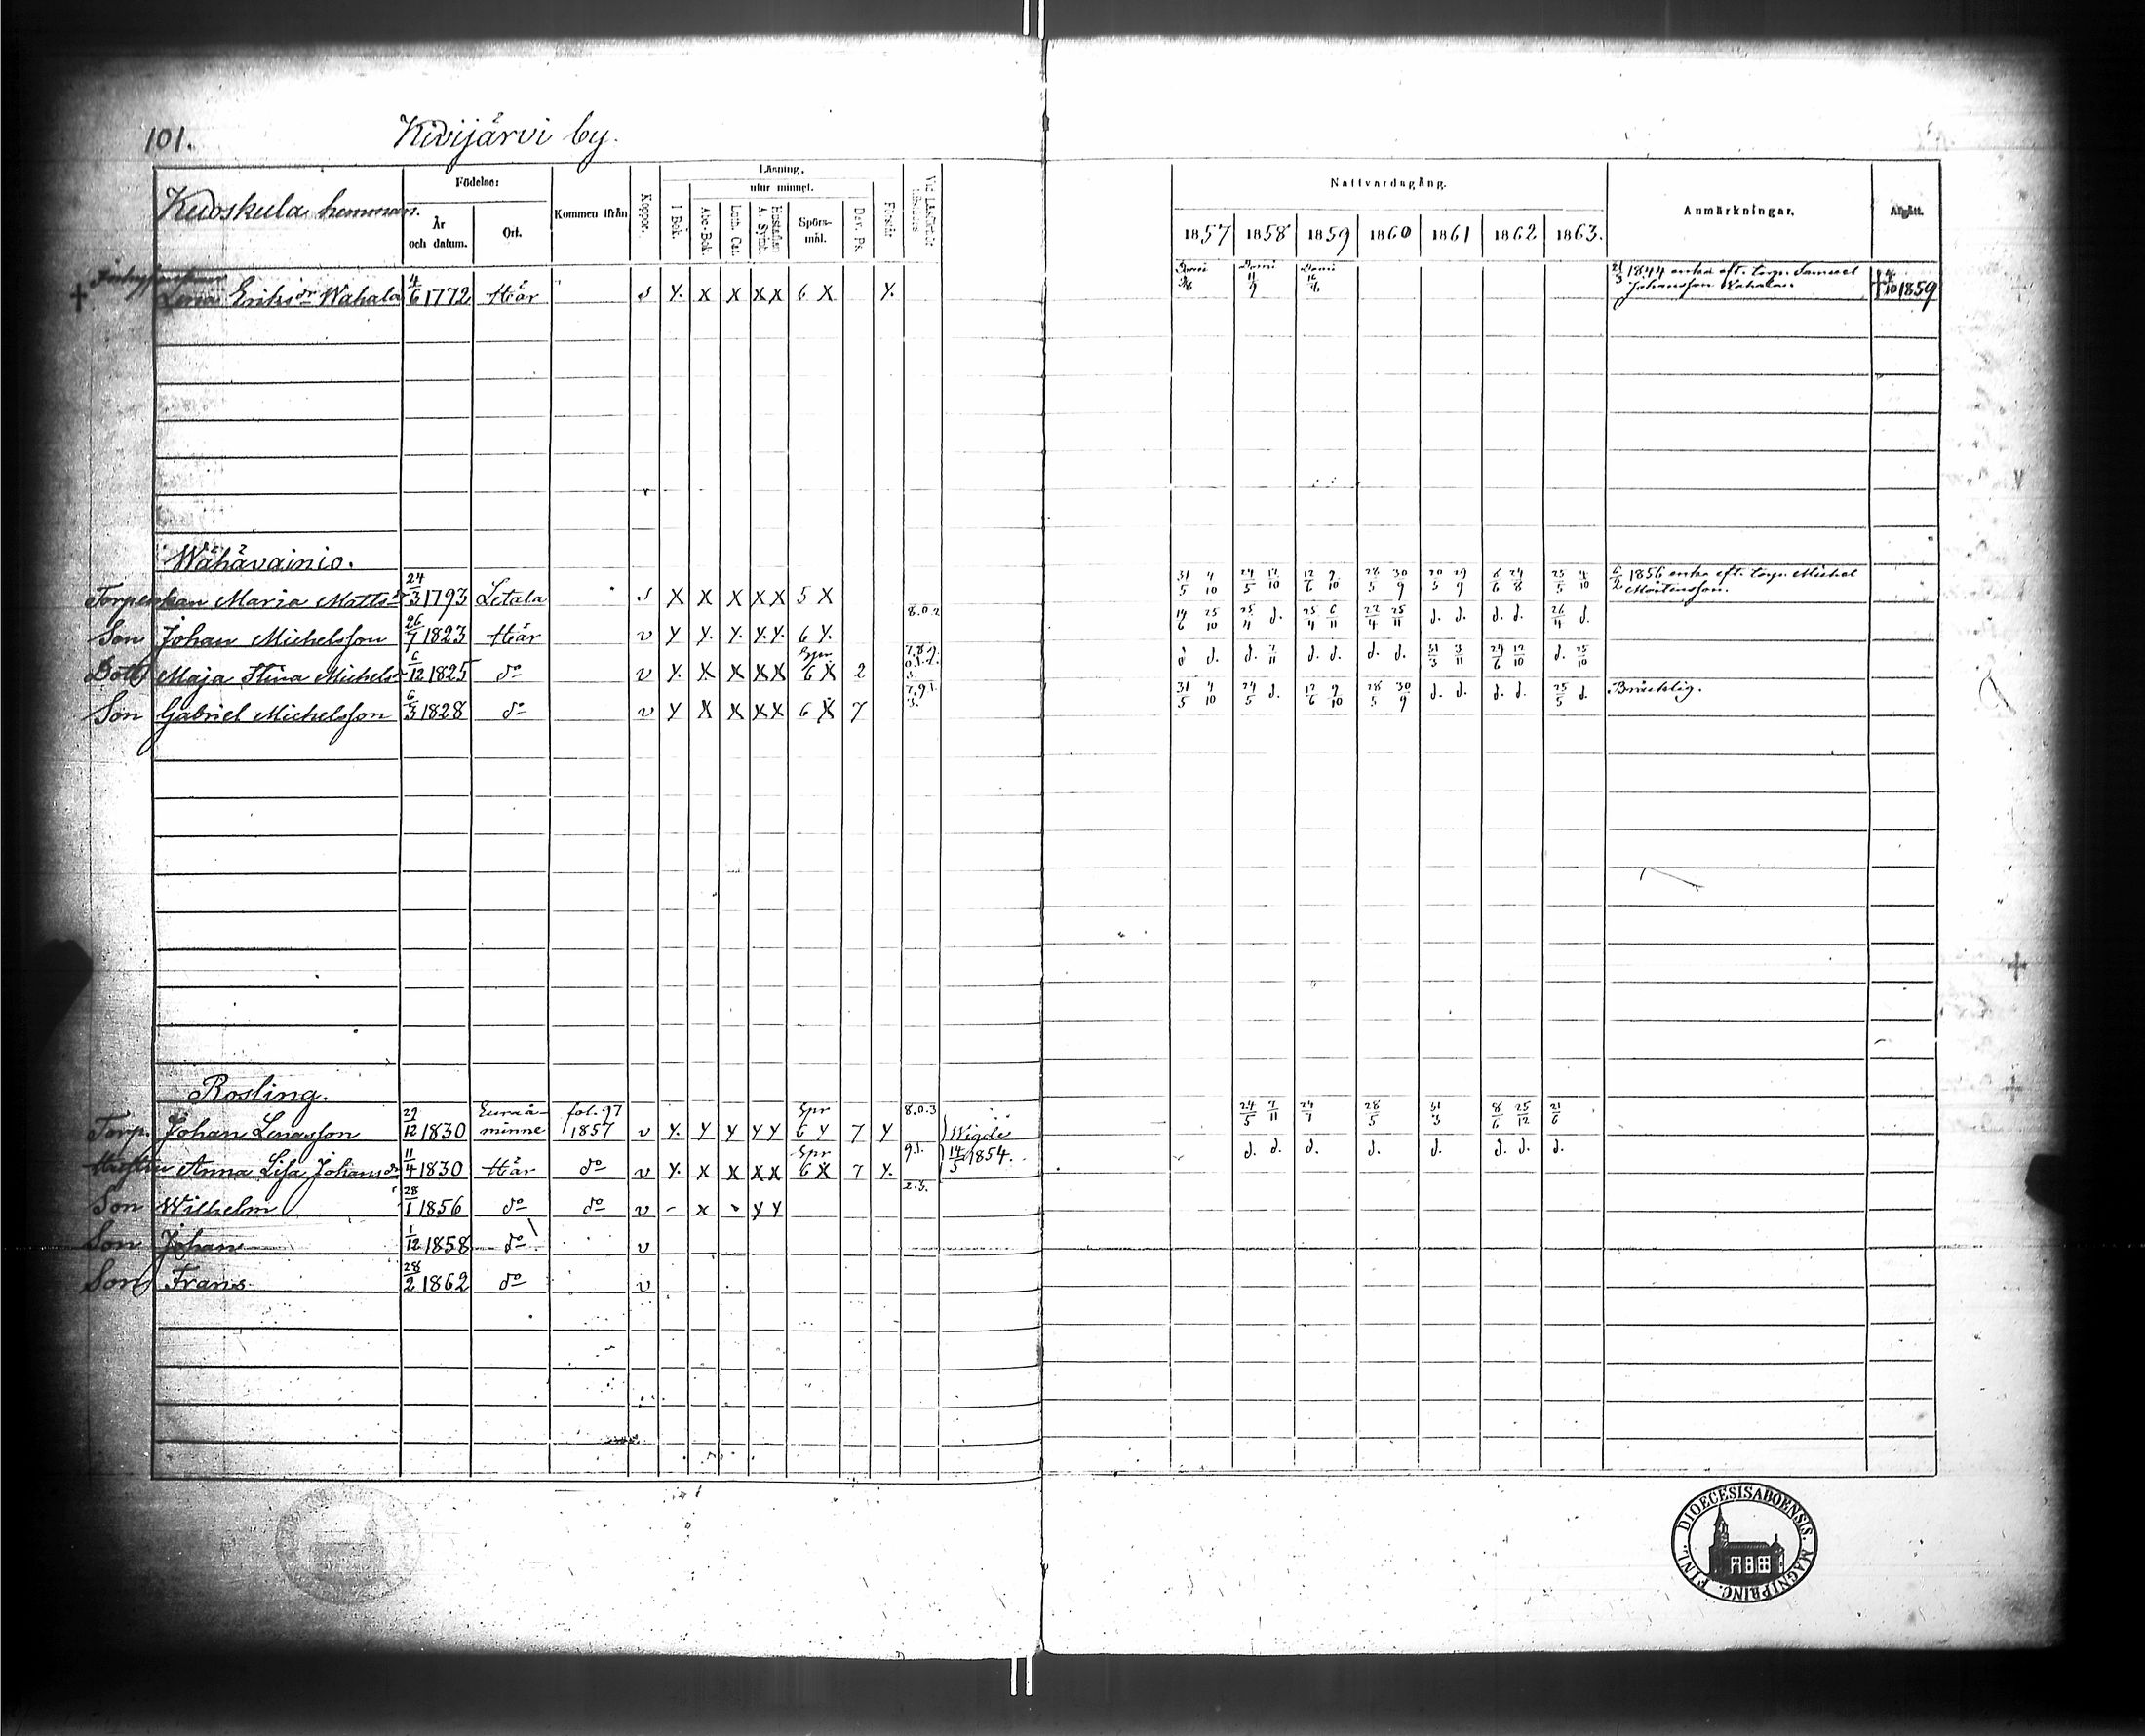 101. Kivijärvi by.
Kuoskula hemman.
Födelse:
År och datum.
Ort.
Kommen ifrån
Koppor.
Läsning,
utur minnet.
I Bok.
Abc-Bok.
Luth. Cat.
Hustaflan A. Symb.
Spörs-mål.
Dav. Ps.
Förstår
Nattvardsgång.
1857 1858 1859 1860 1861 1862 1863.
Anmärkningar.
Afgått.
† Lena Eriksdr Wahala 4/6 1772 Här s Y. X X X X 6 X Y. 21/3 1844 enka eft. torp. Samuel Johansson Wahala. † 4/10 1859
Wähävainio.
Torpenkan Maria Mattsdr 24/3 1793 Letala s X X X X X 5 X 31/5 4/10 24/5 12/10 12/6 9/10 28/5 30/9 20/5 29/9 6/6 24/8 25/5 4/10 6/2 1856 enka eft. torp. Michel Mårtensson.
Son Johan Michelsson 26/7 1823 Här v Y Y. Y. Y. Y. 6 Y. 8.0.2 19/6 25/10 25/4 d. 25/4 6/11 22/4 25/11 d. d. d. d. 26/4 d.
Dott. Maja Stina Michelsdr 6/12 1825 do v Y. X X X X Spr 6 X 2 7.8.9. 0.1. 3. d d. d. 7/11 d. d. d. d. 31/3 3/11 24/6 12/10 d. 25/10
Son Gabriel Michelsson 6/3 1828 do v Y X X X X 6 X 7 7.9.1. 3. 31/5 4/10 24/5 d. 12/6 9/10 28/5 30/9 d. d. d. d. 25/5 d. Bräcklig.
Rosling.
Torp. Johan Lenasson 29/12 1830 Euraåminne fol. 97 1857 v Y. Y Y Y Y Spr 6 Y 7 Y 8.0.3 Wigde 24/5 7/11 24/7 28/5 31/3 8/6 25/12 21/6
Hustru Anna Lisa Johansdr 11/4 1830 Här do v Y. X X X X Spr 6 X 7 Y. 9.1. 14/5 1854. d. d. d. d. d. d. d. d.
Son Wilhelm 28/1 1856 do do v - x Y Y 2.3.
Son Johan 1/12 1858 do v
Son Frans 28/2 1862 do v
DIOECESIS ABOENSIS. MAGNI PRINC. FINL.